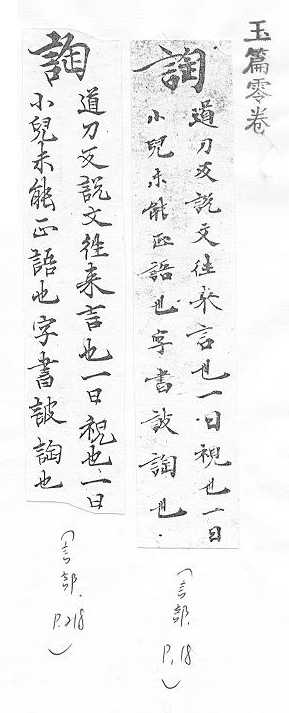 玉篇零卷
䛬
道刀反説文往来言也一曰祝也一曰
小兒未能正語也字書詖䛬也
(言部. P.18)
䛬
道刀反説文往来言也一曰祝也一曰
小兒未能正語也字書詖䛬也
(言部. P.218)